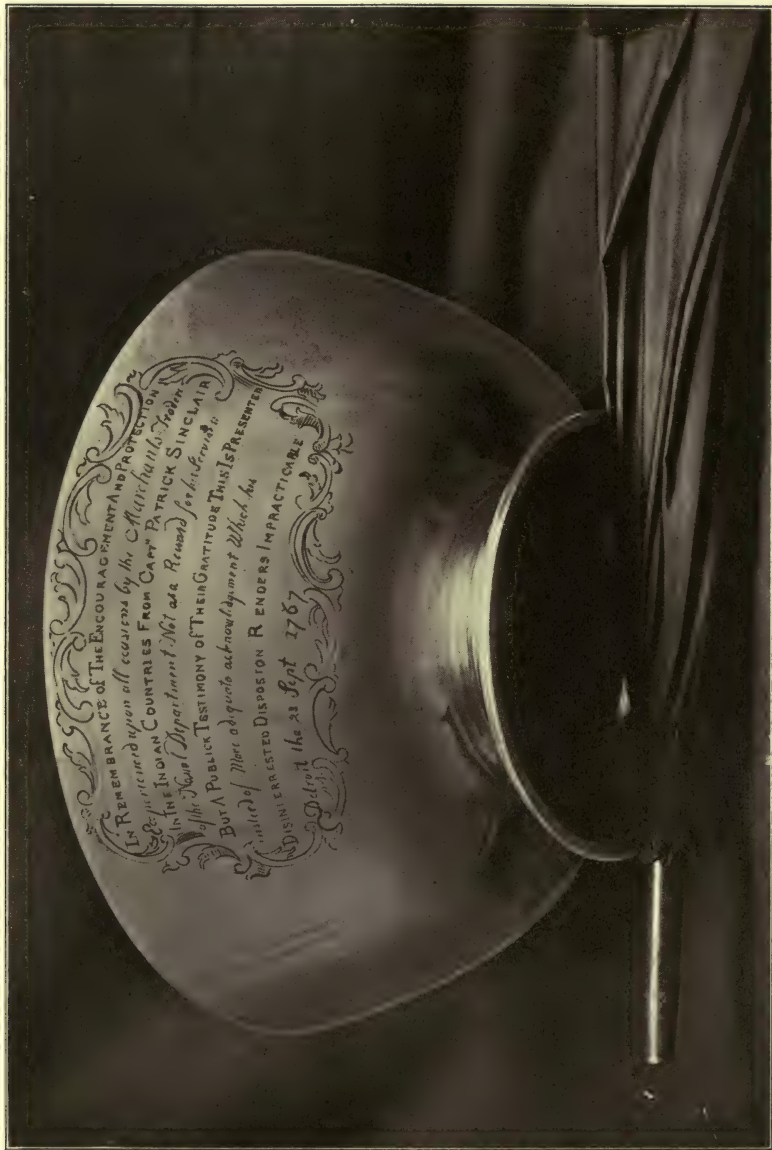 IN REMEMBRANCE OF THE ENCOURAGEMENT AND PROTECTION
Experienced upon all occasions by the Marchants Traden
IN THE INDIAN COUNTRIES FROM CAPTN PATRICK SINCLAIR
of the Naval Department Not as a Reward for his Services
BUT A PUBLICK TESTIMONY OF THEIR GRATITUDE THIS IS PRESENTED
insted of More adequate acknowledgment Which his
DISINTERRESTED DISPOSTON RENDERS IMPRACTICABLE
Detroit the 23 Sept 1767